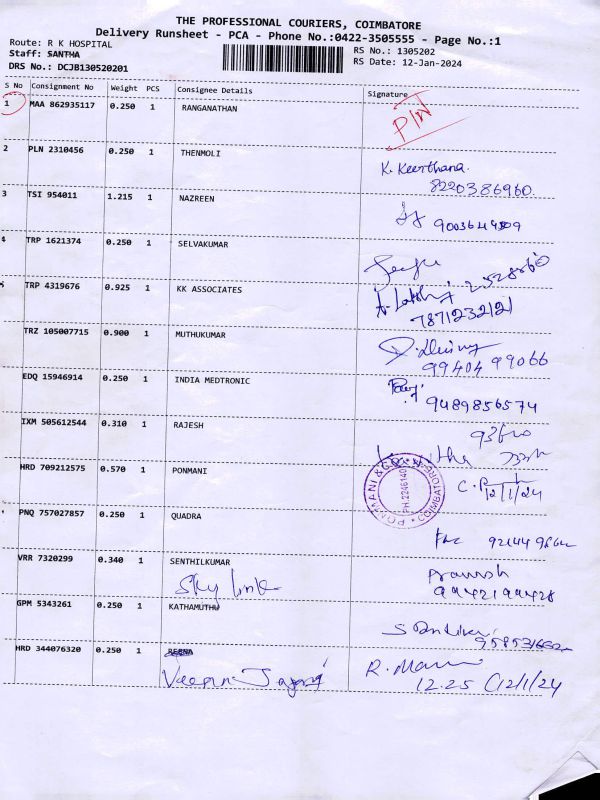 THE PROFESSIONAL COURIERS, COIMBATORE
Delivery Runsheet - PCA - Phone No.:0422-3505555 - Page No.:1
Route: R K HOSPITAL
RS No.: 1305202
Staff: SANTHA
RS Date: 12-Jan-2024
DRS No.: DCJB130520201
S No Consignment No Weight PCS Consignee Details Signature
1 MAA 862935117 0.250 1 RANGANATHAN
PIN
2 PLN 2310456 0.250 1 THENMOLI
K. Keerthana
8220386960
3 TSI 954011 1.215 1 NAZREEN
4 TRP 1621374 0.250 1 SELVAKUMAR
TRP 4319676 0.925 1 KK ASSOCIATES
7871232121
TRZ 105007715 0.900 1 MUTHUKUMAR
99404 99066
EDQ 15946914 0.250 1 INDIA MEDTRONIC
9489856574
IXM 505612544 0.310 1 RAJESH
HRD 709212575 0.570 1 PONMANI
12/1/24
PH:2246140
COIMBATORE
PNQ 757027857 0.250 1 QUADRA
VRR 7320299 0.340 1 SENTHILKUMAR
Sky link
Pramesh
9942199428
GPM 5343261 0.250 1 KATHAMUTHU
HRD 344076320 0.250 1 REENA
R. Mani
12.25 (12/1/24